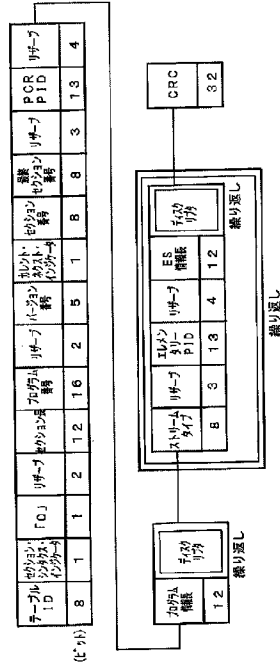 テーブルID セクション・シンタクス・インジケータ 「0」 リザーブ セクション長 プログラム番号 リザーブ バージョン番号 カレント・ネクスト・インジケータ セクション番号 最終セクション番号 リザーブ PCR PID リザーブ
(ビット) 8 1 1 2 12 16 2 5 1 8 8 3 13 4
プログラム情報長 ディスクリプタ ストリームタイプ リザーブ エレメンタリーPID リザーブ ES情報長 ディスクリプタ CRC
12 8 3 13 4 12 32
繰り返し 繰り返し
繰り返し